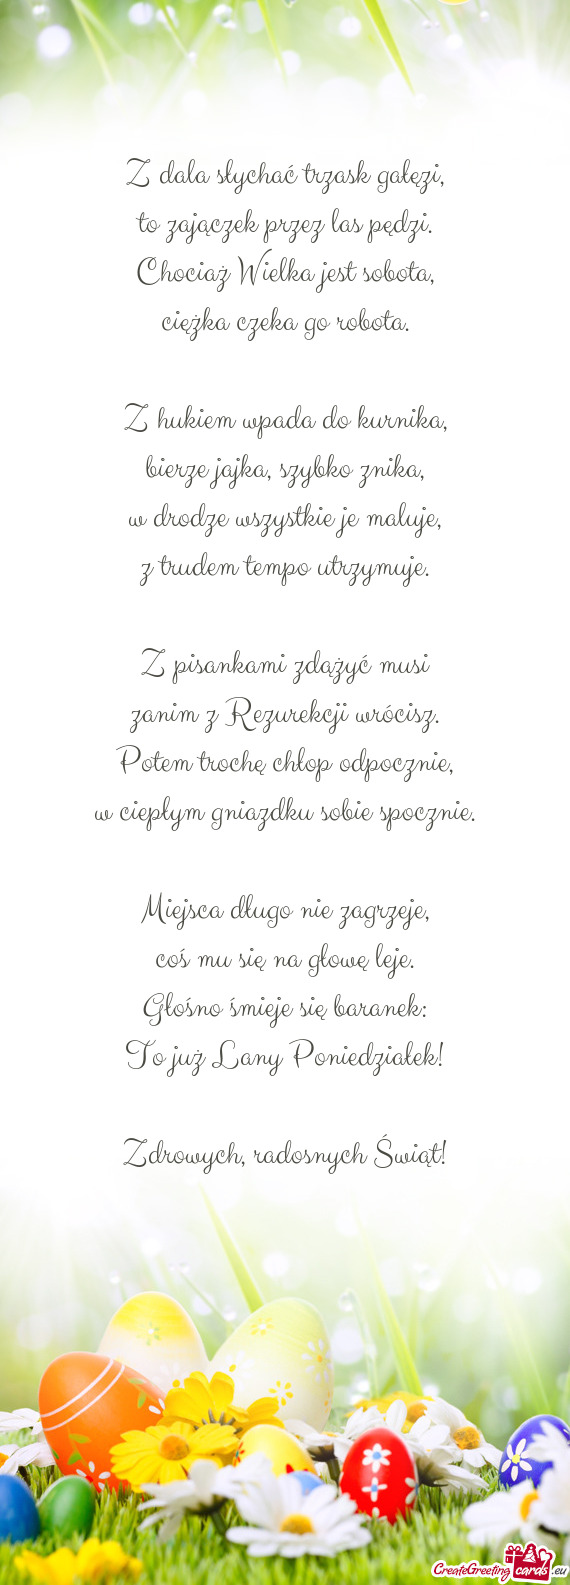 Z dala słychać trzask gałęzi,
to zajączek przez las pędzi.
Chociaż Wielka jest sobota,
ciężka czeka go robota.
Z hukiem wpada do kurnika,
bierze jajka, szybko znika,
w drodze wszystkie je maluje,
z trudem tempo utrzymuje.
Z pisankami zdążyć musi
zanim z Rezurekcji wrócisz.
Potem trochę chłop odpocznie,
w ciepłym gniazdku sobie spocznie.
Miejsca długo nie zagrzeje,
coś mu się na głowę leje.
Głośno śmieje się baranek:
To już Lany Poniedziałek!
Zdrowych, radosnych Świąt!
CreateGreeting cards .eu